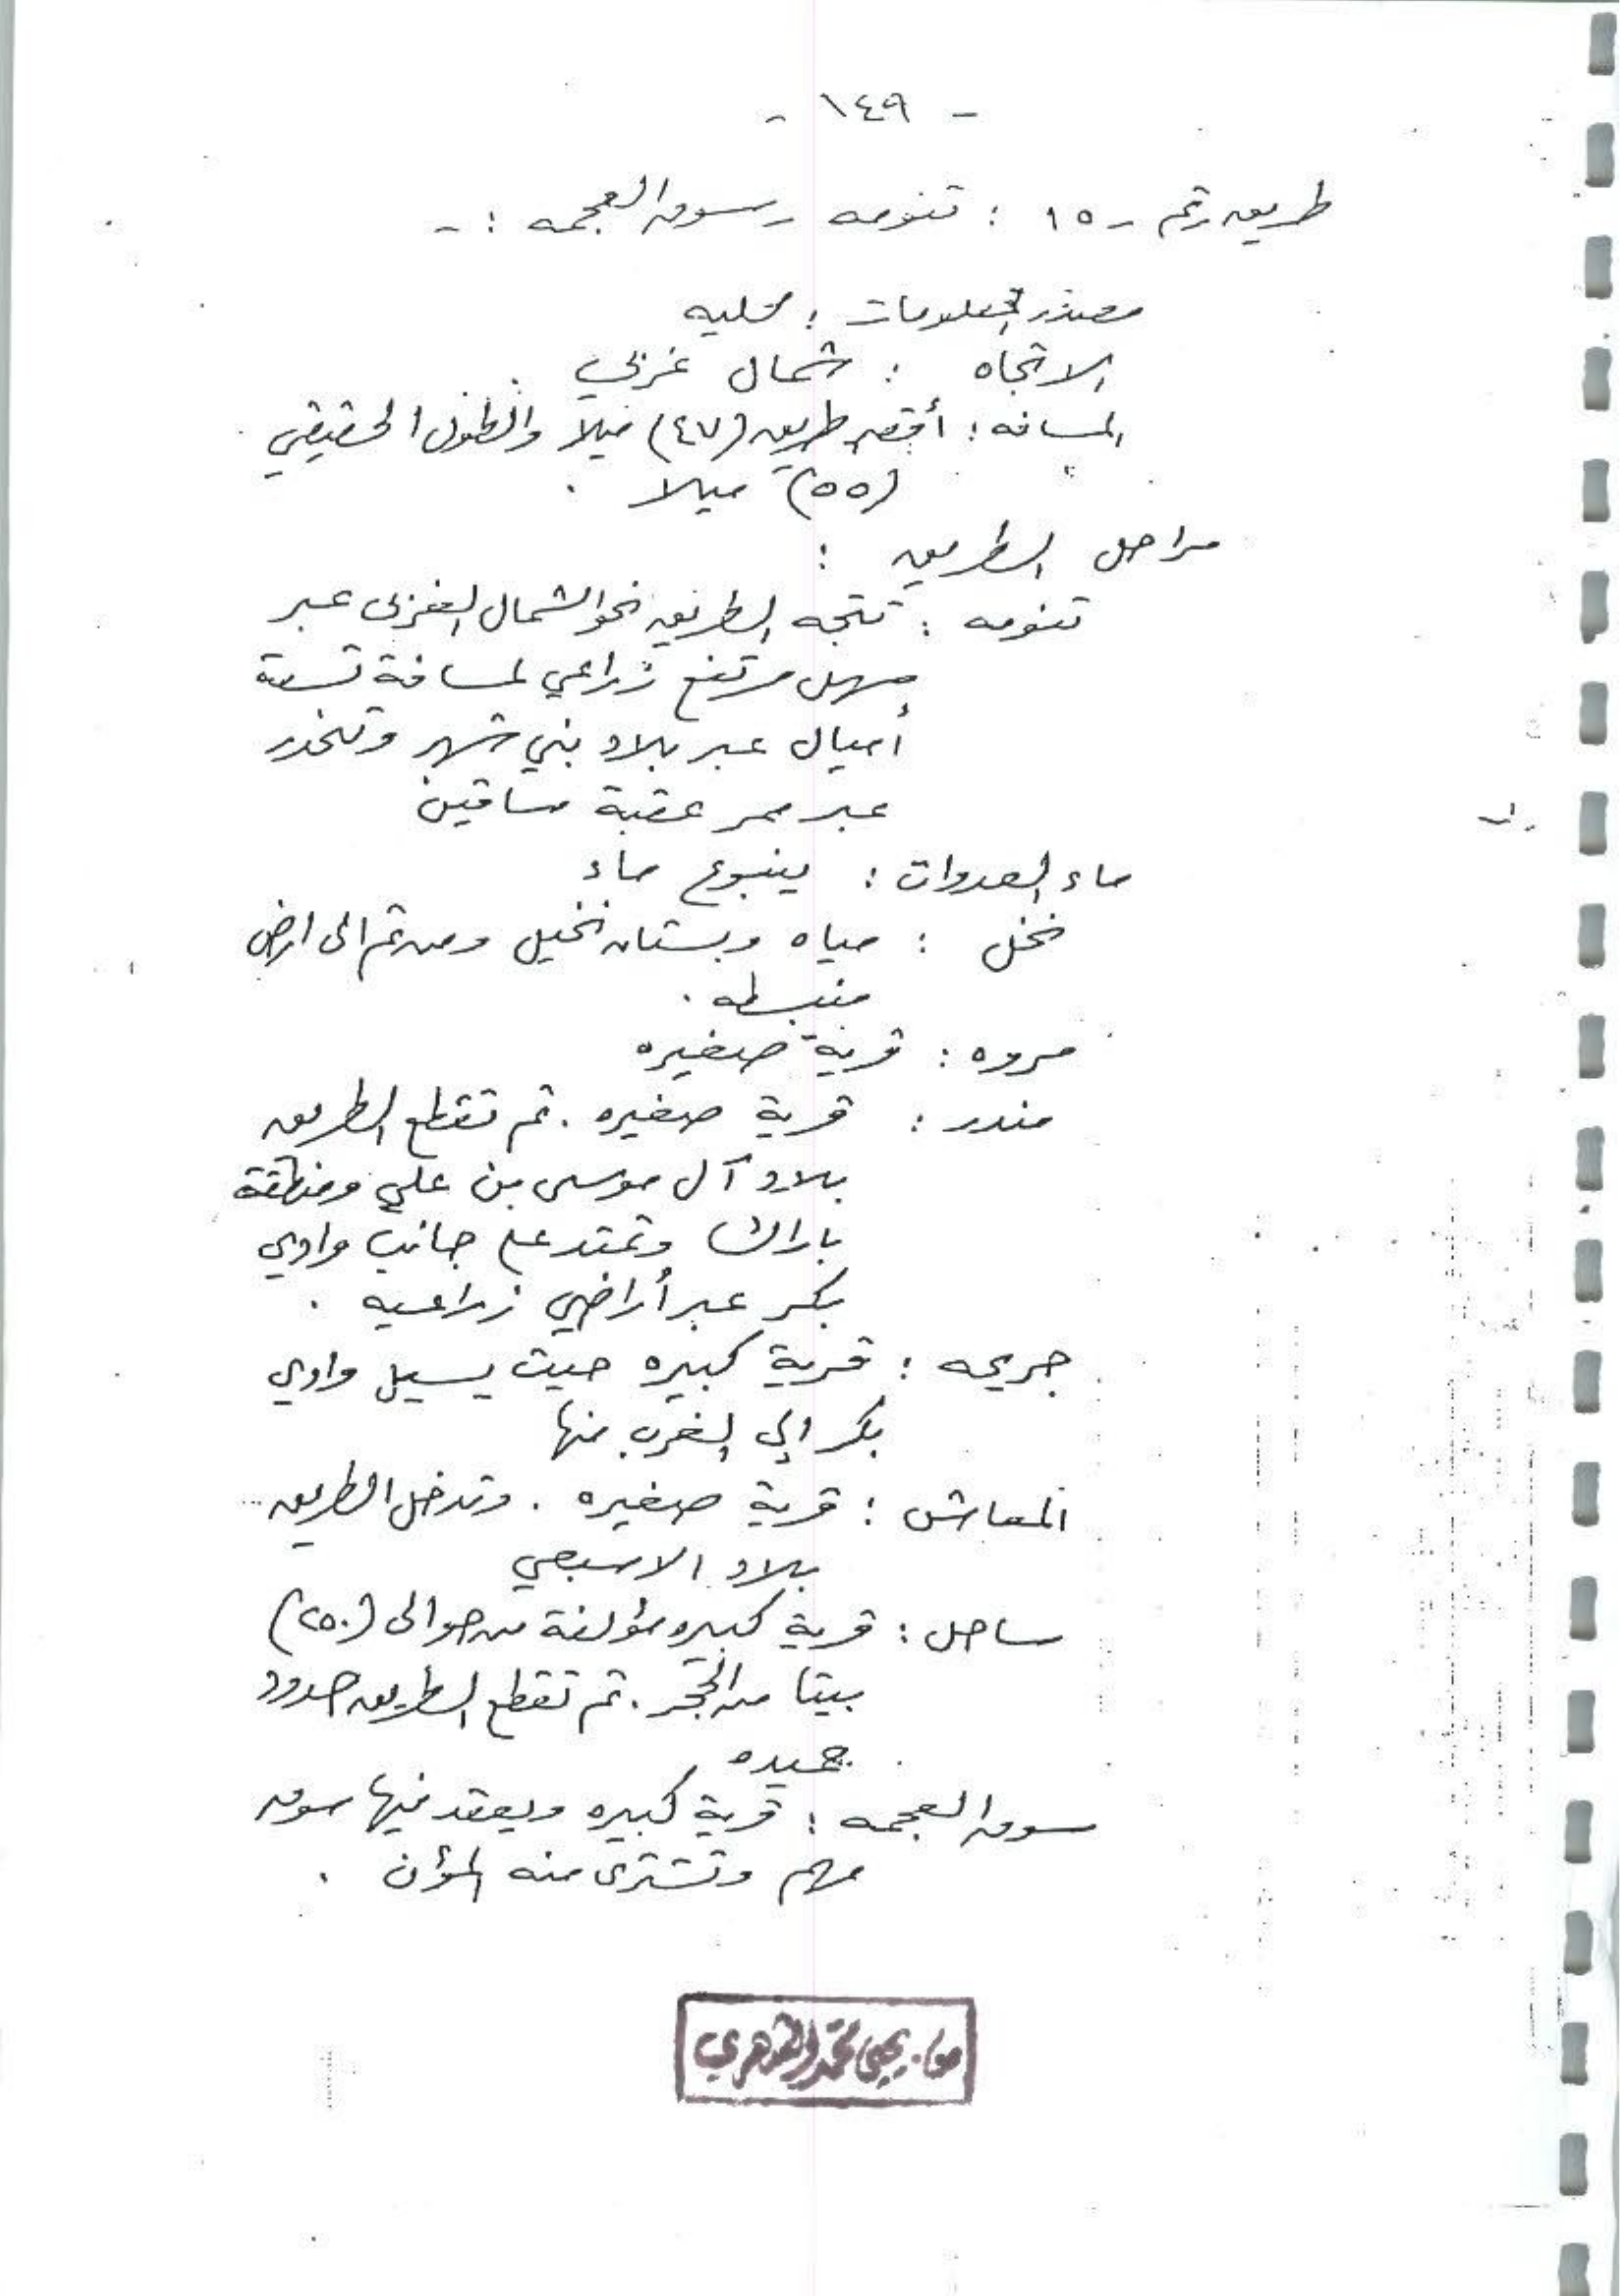 - ١٤٩ -
طريق رقم - ١٥ : تنومه - سوق العجمه : -
مصدر المعلومات : محليه
الاتجاه : شمال غربي
المسافه : أقصر طريق (٤٧) ميلا والطول الحقيقي
(٥٥) ميلا .
مراحل الطريق :
تنومه : تتجه الطريق نحو الشمال الغربى عبر
سهل مرتفع زراعي لمسافة تسعة
أميال عبر بلاد بني شهر وتنحدر
عبر ممر عقبة ساقين
ماء العدوان : ينبوع ماء
نخل : مياه وبستان نخيل ومن ثم الى ارض
منبسطه .
مروه : قرية صغيره
مندر : قرية صغيره . ثم تقطع الطريق
بلاد آل موسى بن علي ومنطقة
باراك وتمتد على جانب وادي
بكر عبر أراضي زراعيه .
جريحه : قرية كبيره حيث يسيل وادي
بكر إلى الغرب منها
المعاش : قرية صغيره . وتدخل الطريق
بلاد الاسبعي
ساحل : قرية كبيره مؤلفة من حوالى (٢٥٠)
بيتا من الحجر . ثم تقطع الطريق حدود
حميده
سوق العجمه : قرية كبيره ويعقد فيها سوق
مهم وتشترى منه المؤن .
يحيى محمد